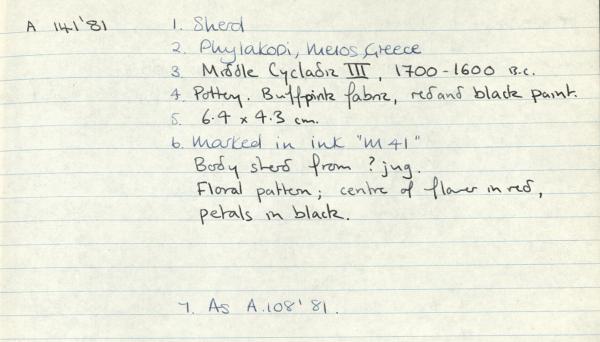 A 141'81
1. Sherd
2. Phylakopi, Melos, Greece
3. Middle Cycladic III, 1700-1600 B.C.
4. Pottery. Buffpink fabric, red and black paint.
5. 6.4 x 4.3 cm.
6. Marked in ink "M41"
Body sherd from ? jug.
Floral pattern; centre of flower in red,
petals in black.
7. As A.108'81.